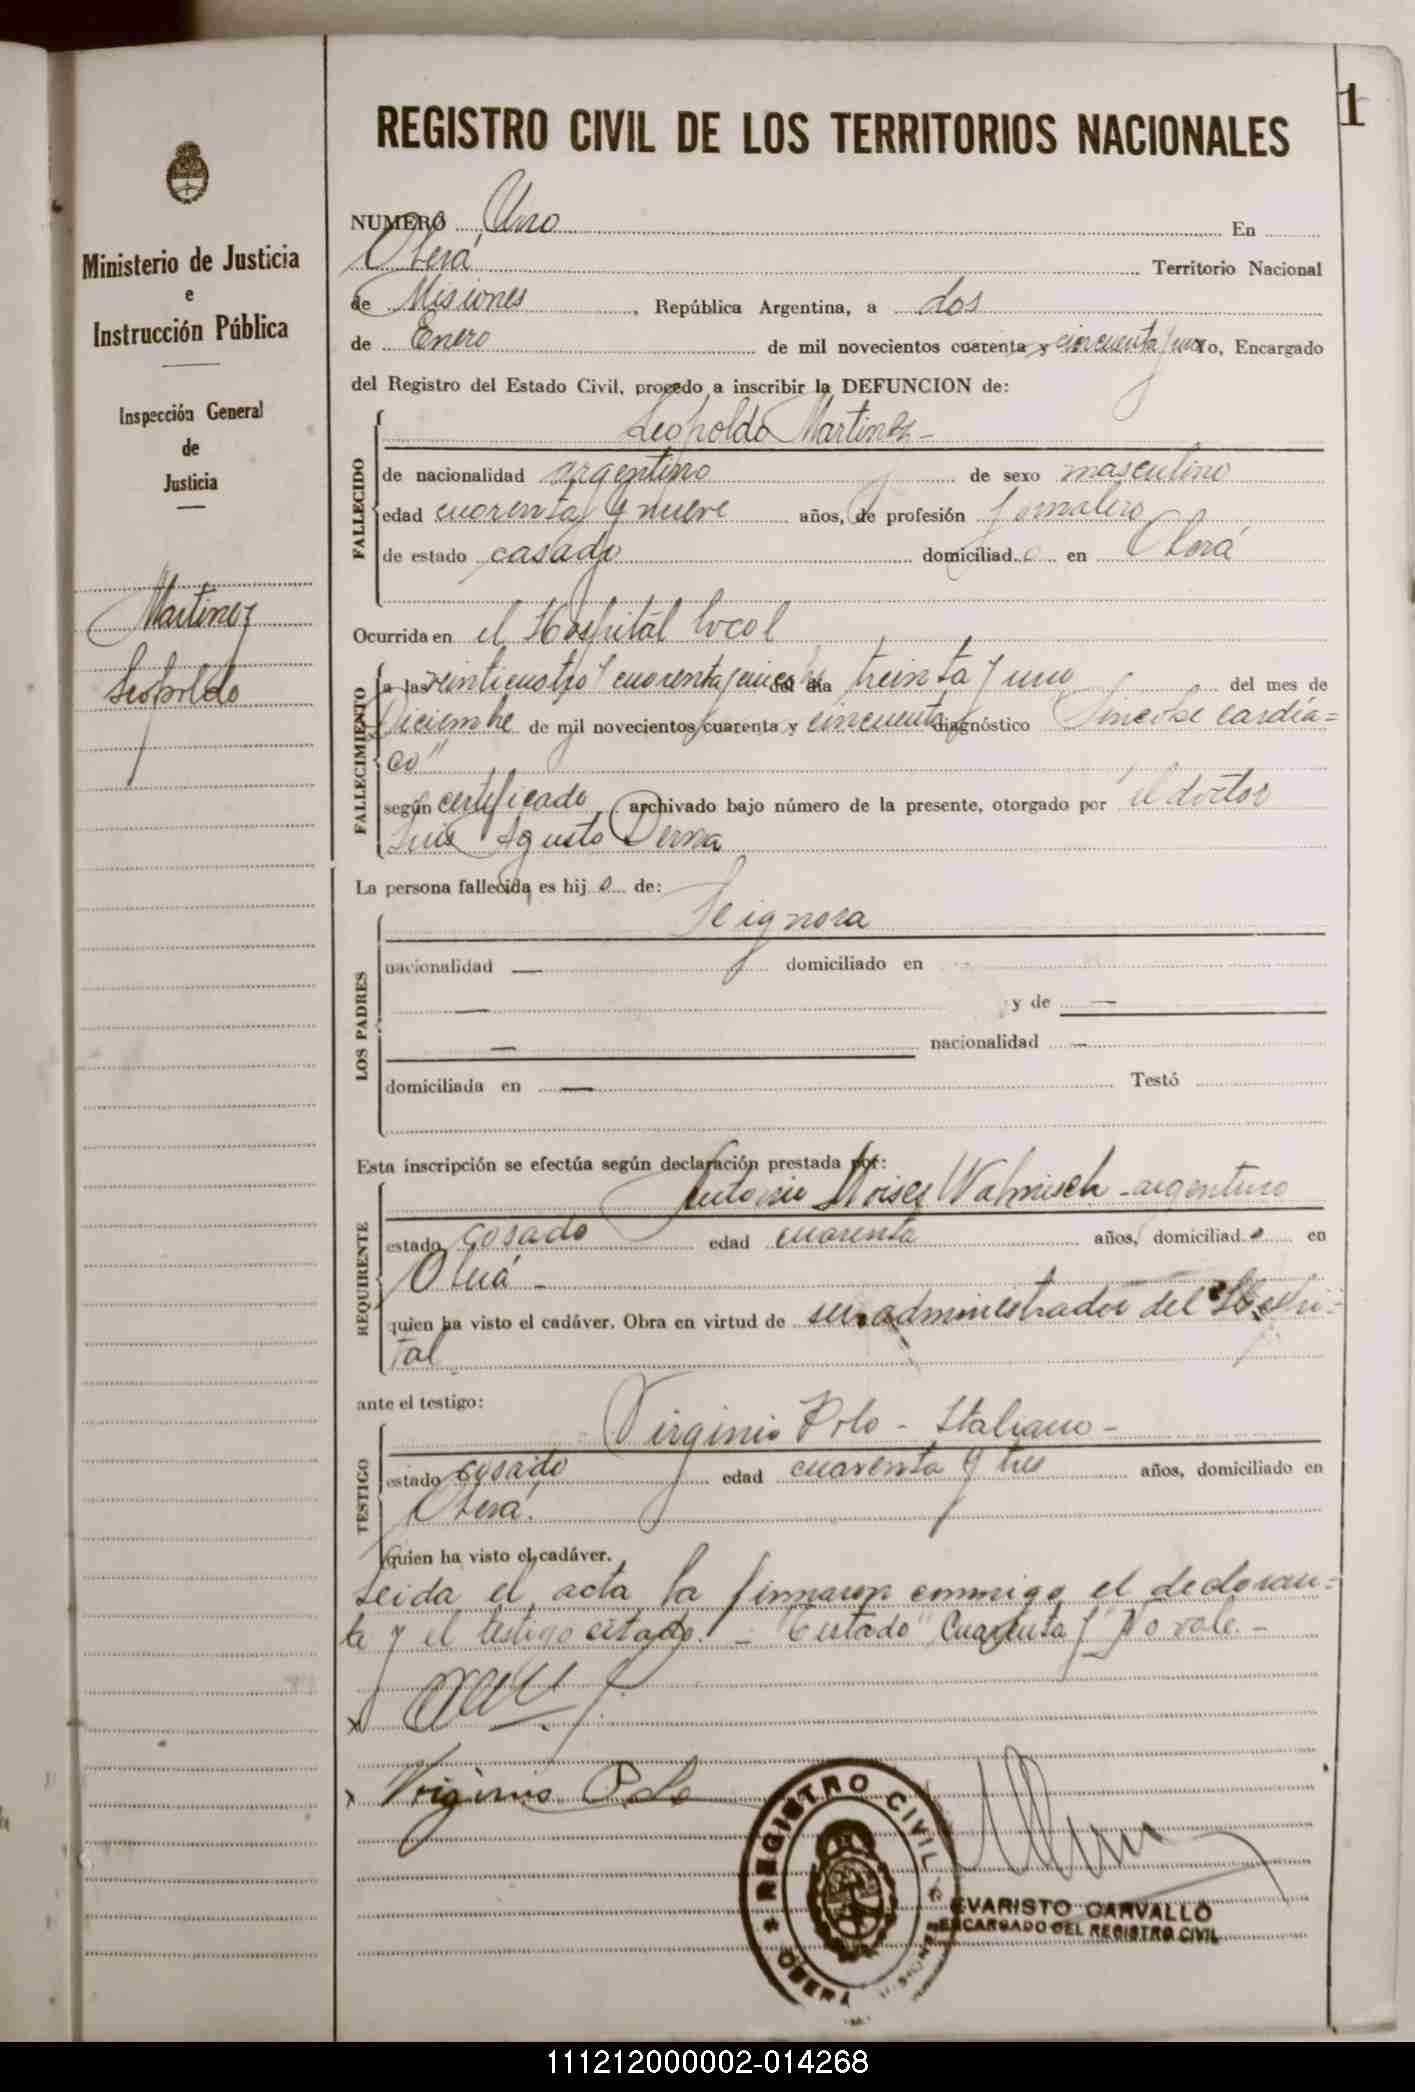 1
REGISTRO CIVIL DE LOS TERRITORIOS NACIONALES
Ministerio de Justicia
e
Instrucción Pública
Inspección General
de
Justicia
Martinez
Leopoldo
NUMERO Uno En
Oberá Territorio Nacional
de Misiones, República Argentina, a dos
de Enero de mil novecientos cuarenta y cincuenta y uno Yo, Encargado
del Registro del Estado Civil, procedo a inscribir la DEFUNCION de:
FALLECIDO
Leopoldo Martinez-
de nacionalidad argentino de sexo masculino
edad cuarenta y nueve años, de profesión jornalero
de estado casado domiciliado en Oberá
Ocurrida en el Hospital local
FALLECIMIENTO
a las veinticuatro y cuarenta del dia treinta y uno del mes de
Diciembre de mil novecientos cuarenta y cincuenta diagnóstico Sincope cardía=
co"
según certificado archivado bajo número de la presente, otorgado por el doctor
Luis Agusto Derna
La persona fallecida es hijo de:
LOS PADRES
Se ignora
nacionalidad — domiciliado en
— y de —
— nacionalidad —
domiciliada en — Testó
Esta inscripción se efectúa según declaración prestada por:
REQUIRENTE
Antonio Moises Walmisch - argentino
estado casado edad cuarenta años, domiciliado en
Oberá -
quien ha visto el cadáver. Obra en virtud de ser administrador del Hospi=
tal
ante el testigo:
TESTIGO
Virginio Polo - Italiano -
estado casado edad cuarenta y tres años, domiciliado en
Oberá.
quien ha visto el cadáver.
Leida el acta la firmaron conmigo el declaran=
te y el testigo citado. - Testado "Cuarenta y" No vale. -
x
x Virginio Polo
REGISTRO CIVIL
OBERA MISIONES
EVARISTO CARVALLO
ENCARGADO DEL REGISTRO CIVIL
111212000002-014268